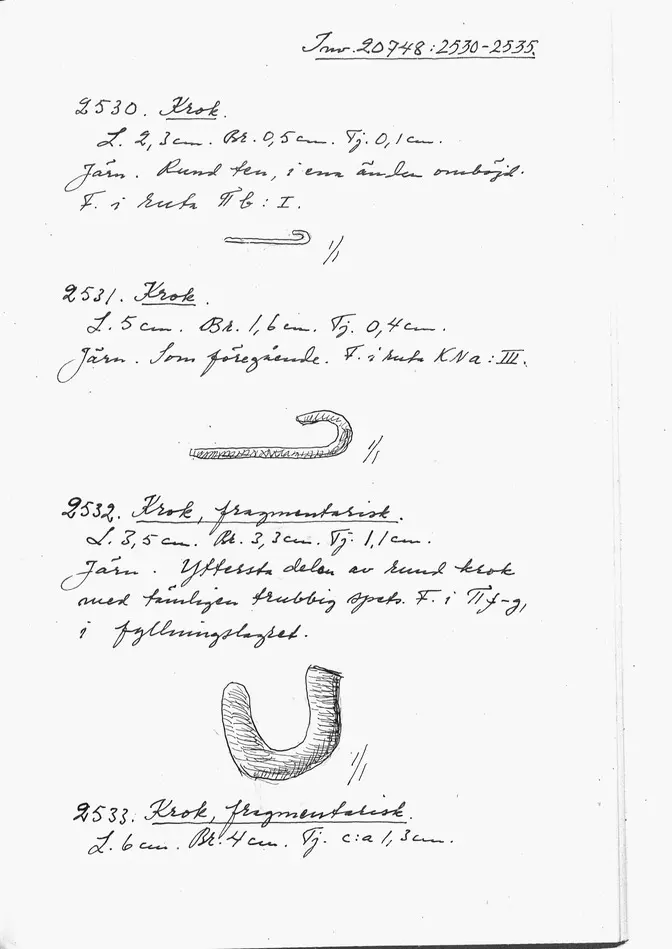 Inv. 20748:2530-2535.
2530. Krok.
L. 2,3cm. Br. 0,5cm. Tj. 0,1cm.
Järn. Rund ten, i ena änden ombòjd.
F. i ruta Π b : I.
1/1
2531. Krok.
L. 5cm. Br. 1,6cm. Tj. 0,4cm.
Järn. Som föregående. F. i ruta KNa : III.
1/1
2532. Krok, fragmentarisk.
L. 3,5cm. Br. 3,3cm. Tj. 1,1cm.
Järn. Yttersta delen av rund krok
med tämligen trubbig spets. F. i Π f-g,
i fyllningslagret.
1/1
2533. Krok, fragmentarisk.
L. 6cm. Br. 4cm. Tj. c:a 1,3cm.